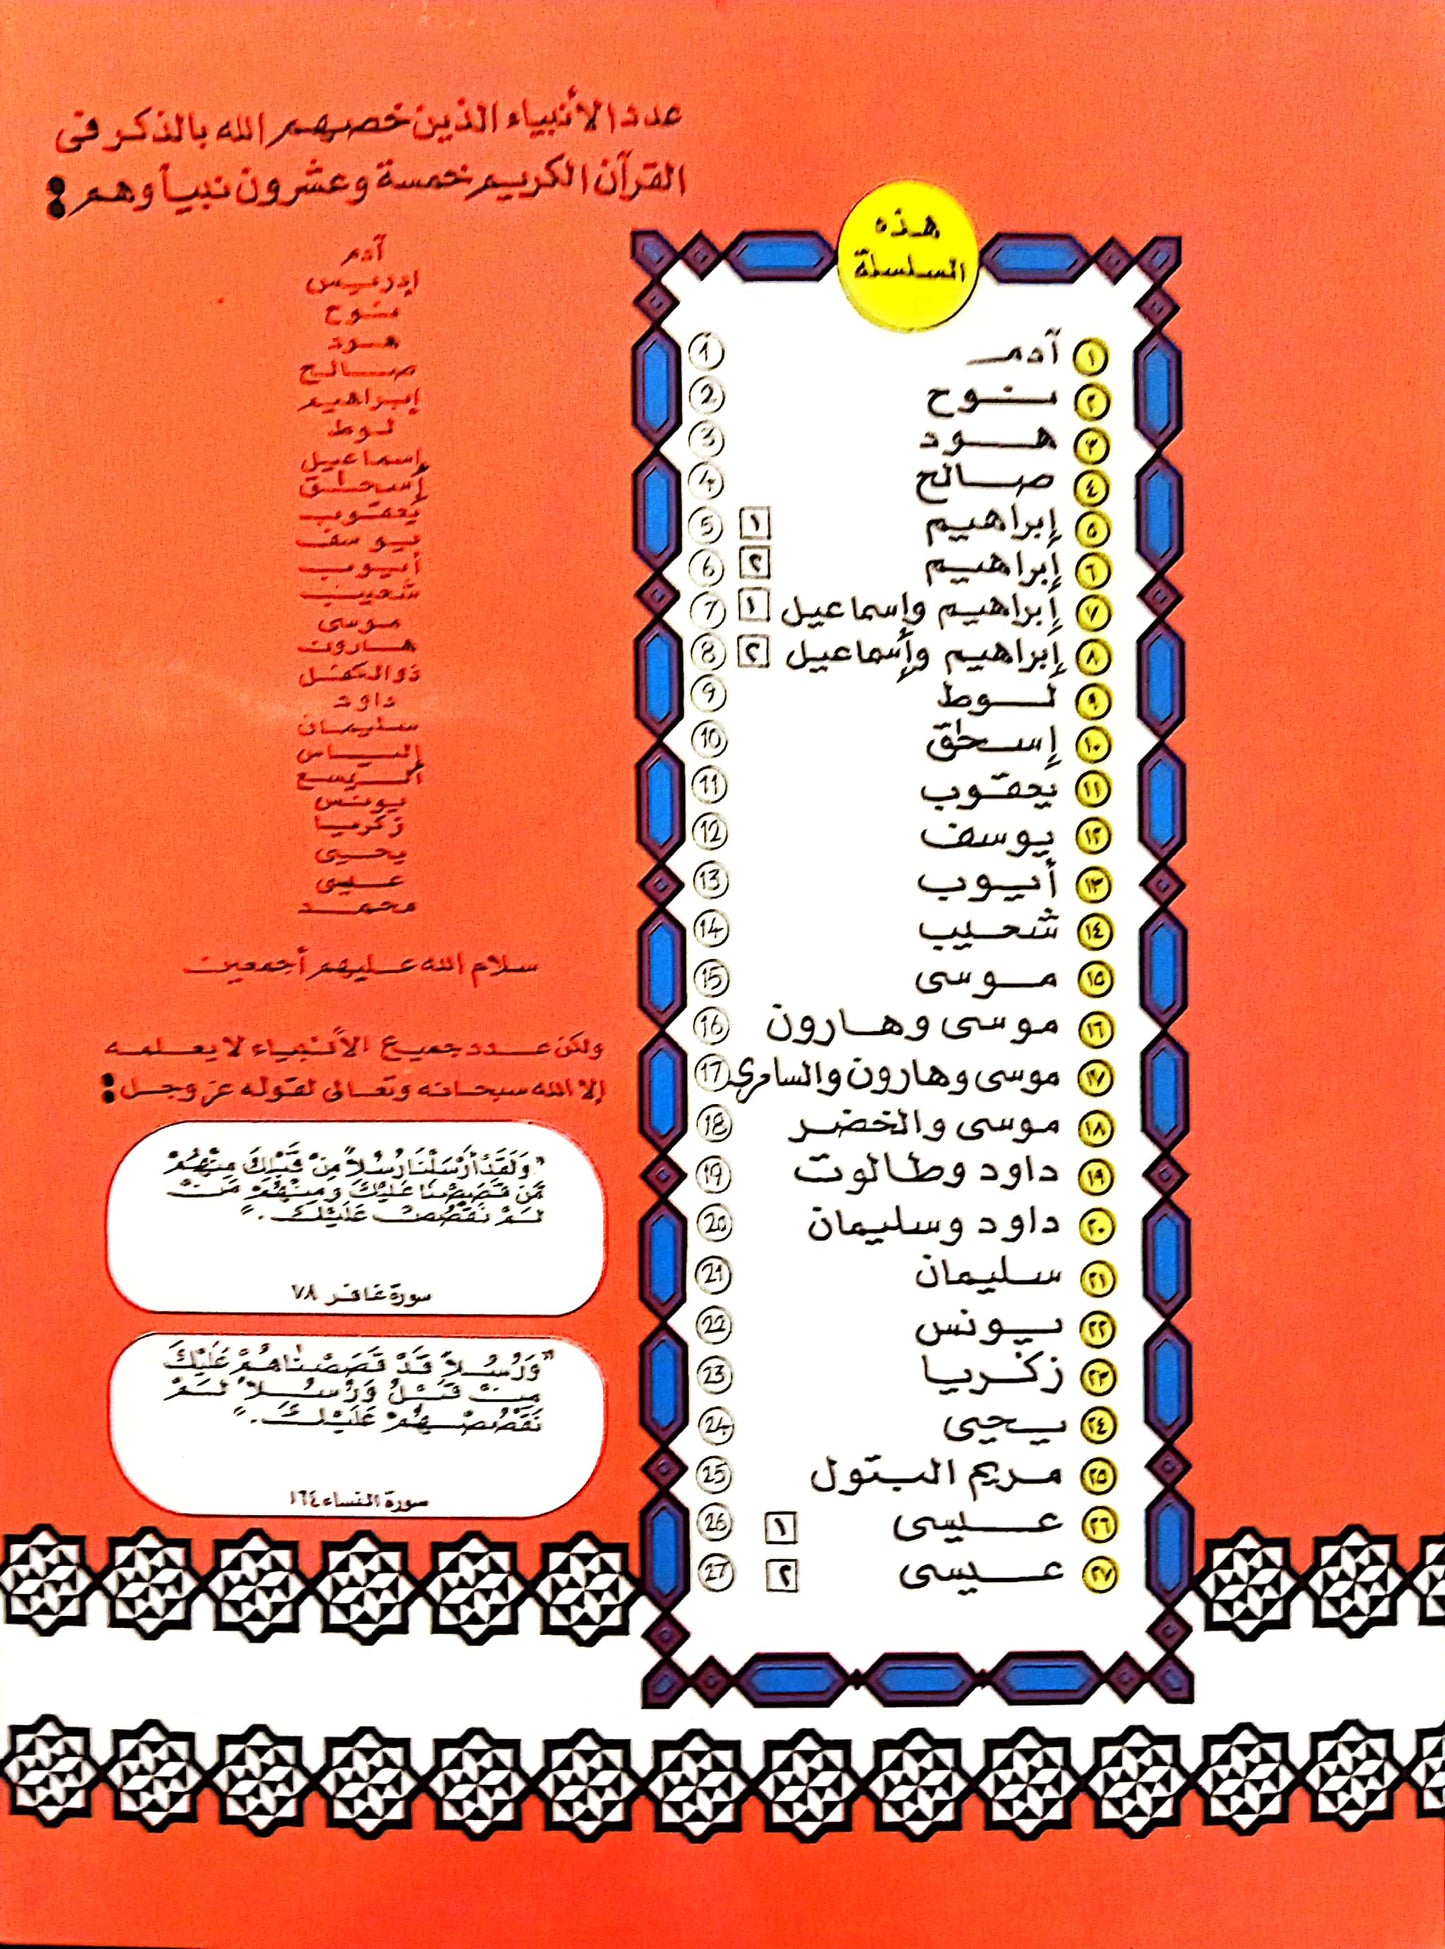 عدد الأنبياء الذين خصهم الله بالذكر فى
القرآن الكريم خمسة وعشرون نبيأ وهم :
آدم
إدريس
نوح
هود
صالح
إبراهيم
لوط
إسماعيل
إسحاق
يعقوب
يوسف
أيوب
شعيب
موسى
هارون
ذوالكفل
داود
سليمان
إلياس
اليسع
يونس
زكريا
يحيى
عيسى
محمد
سلام الله عليهم أجمعين
ولكن عدد جميع الأنبياء لا يعلمه
إلا الله سبحانه وتعالى لقوله عز وجل :
"وَلَقَدْ أَرْسَلْنَا رُسُلاً مِنْ قَبْلِكَ مِنْهُمْ
مَّنْ قَصَصْنَا عَلَيْكَ وَمِنْهُمْ مَنْ
لَمْ نَقْصُصْ عَلَيْكَ ."
سورة غافر ٧٨
"وَرُسُلاً قَدْ قَصَصْنَاهُمْ عَلَيْكَ
مِنْ قَبْلُ وَرُسُلاً لَمْ
نَقْصُصْهُمْ عَلَيْكَ ."
سورة النساء ١٦٤
هذه
السلسلة
١ آدم 1
٢ نوح 2
٣ هود 3
٤ صالح 4
٥ إبراهيم ١ 5
٦ إبراهيم ٢ 6
٧ إبراهيم وإسماعيل ١ 7
٨ إبراهيم وإسماعيل ٢ 8
٩ لوط 9
١٠ إسحاق 10
١١ يعقوب 11
١٢ يوسف 12
١٣ أيوب 13
١٤ شعيب 14
١٥ موسى 15
١٦ موسى وهارون 16
١٧ موسى وهارون والسامرى 17
١٨ موسى والخضر 18
١٩ داود وطالوت 19
٢٠ داود وسليمان 20
٢١ سليمان 21
٢٢ يونس 22
٢٣ زكريا 23
٢٤ يحيى 24
٢٥ مريم البتول 25
٢٦ عيسى ١ 26
٢٧ عيسى ٢ 27